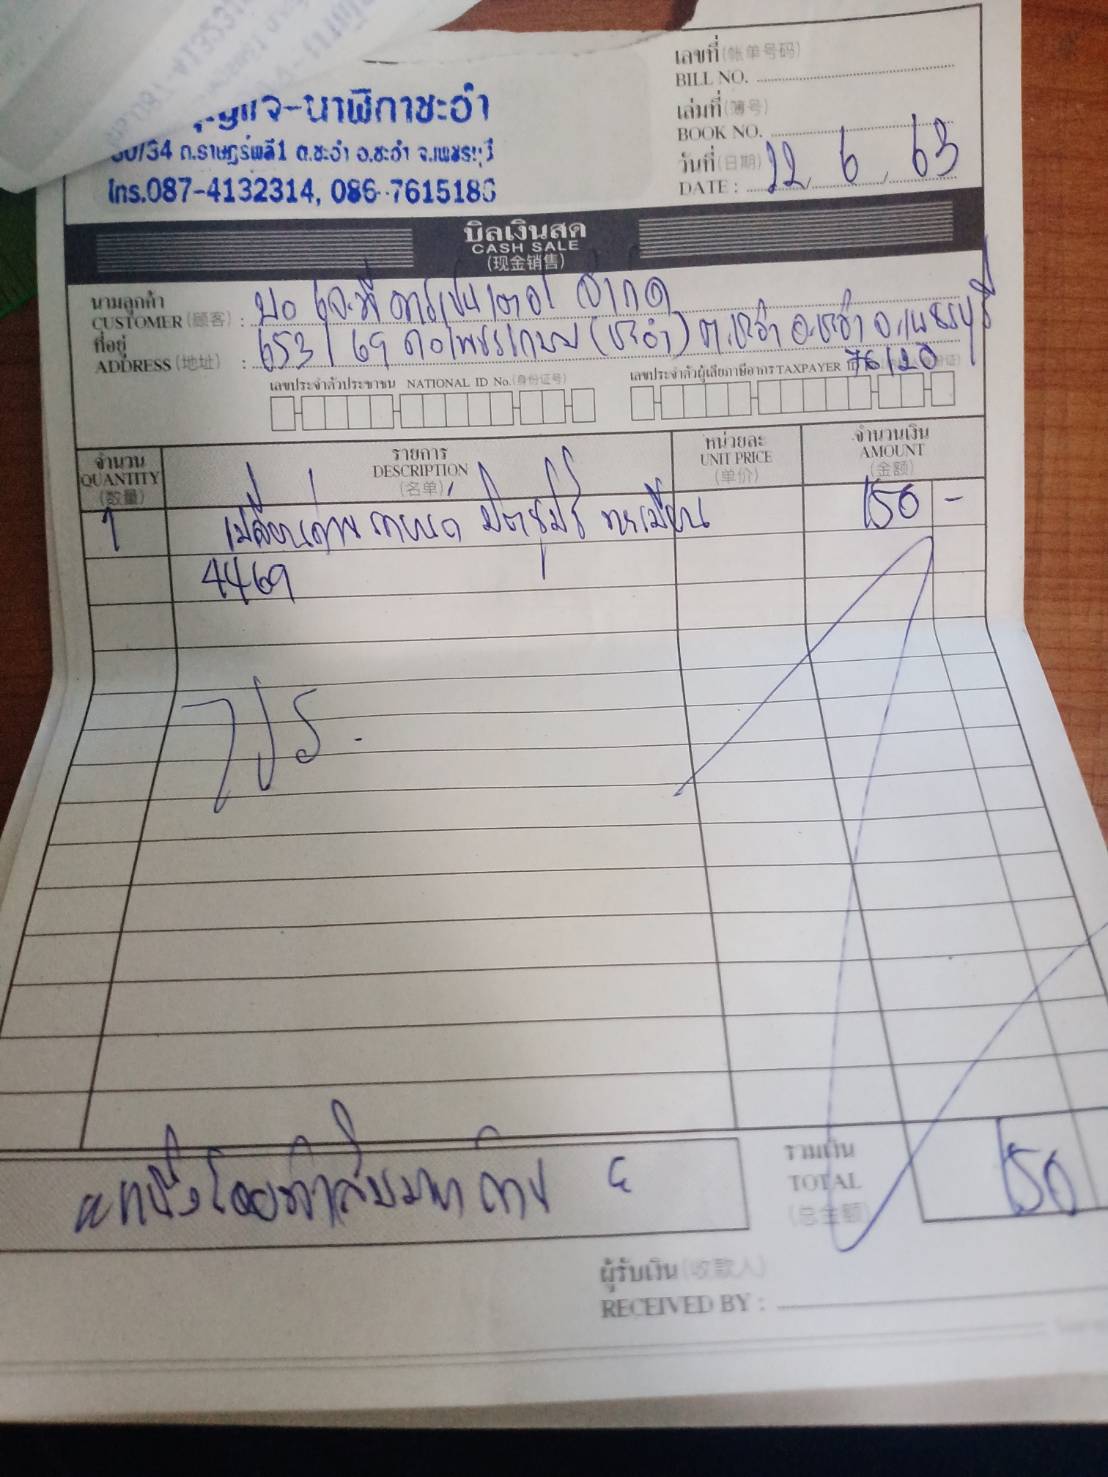 เลขที่ (帐单号码)
BILL NO.
กุญแจ-นาฬิกาชะอำ
เล่มที่ (簿号)
BOOK NO.
60/34 ถ.ราษฎร์พลี1 ต.ชะอำ อ.ชะอำ จ.เพชรบุรี
วันที่ (日期)
DATE : 22 6 63
โทร.087-4132314, 086-7615186
บิลเงินสด
CASH SALE
(现金销售)
นามลูกค้า
CUSTOMER (顾客) : จำกัด
ที่อยู่
ADDRESS (地址) : 653/69 ถ.เพชรเกษม (ชะอำ) ต.ชะอำ อ.ชะอำ จ.เพชรบุรี
76120
เลขประจำตัวประชาชน NATIONAL ID No. (身份证号)
เลขประจำตัวผู้เสียภาษีอากร TAXPAYER
จำนวน
QUANTITY
(数量)
รายการ
DESCRIPTION
(名单)
หน่วยละ
UNIT PRICE
(单价)
จำนวนเงิน
AMOUNT
(金额)
1 เปลี่ยนถ่าน มิตซูบิชิ ทะเบียน 150 -
4469
รวมเงิน
TOTAL 150
(总金额)
ผู้รับเงิน (收款人)
RECEIVED BY :